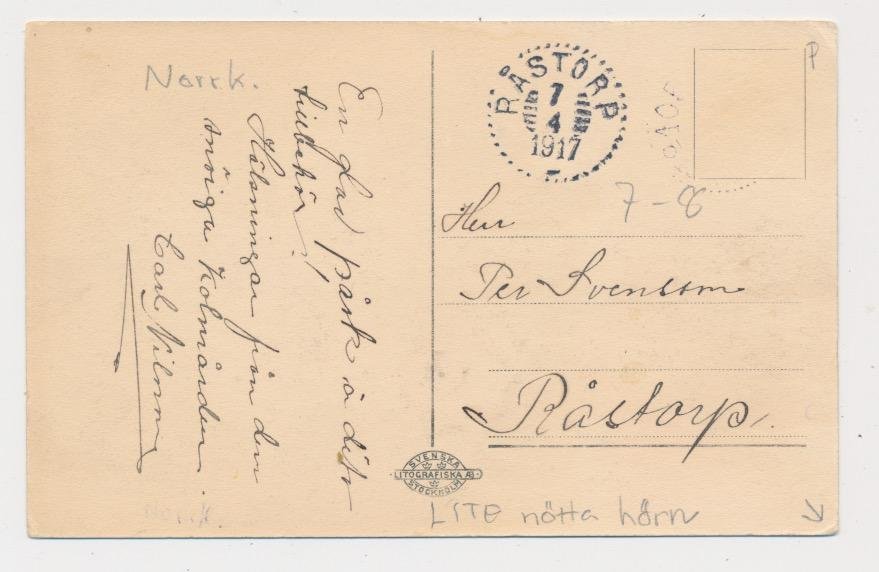 Norrk.
En glad påsk å dito
tillbehör!
Hälsningar från den
snöiga Kolmården.
Carl Nilsson
RÅSTORP
7
4
1917
P
7-8
Herr
Per Svensson
Råstorp.
SVENSKA
LITOGRAFISKA AB
STOCKHOLM
Norrk.
LITE nötta hörn